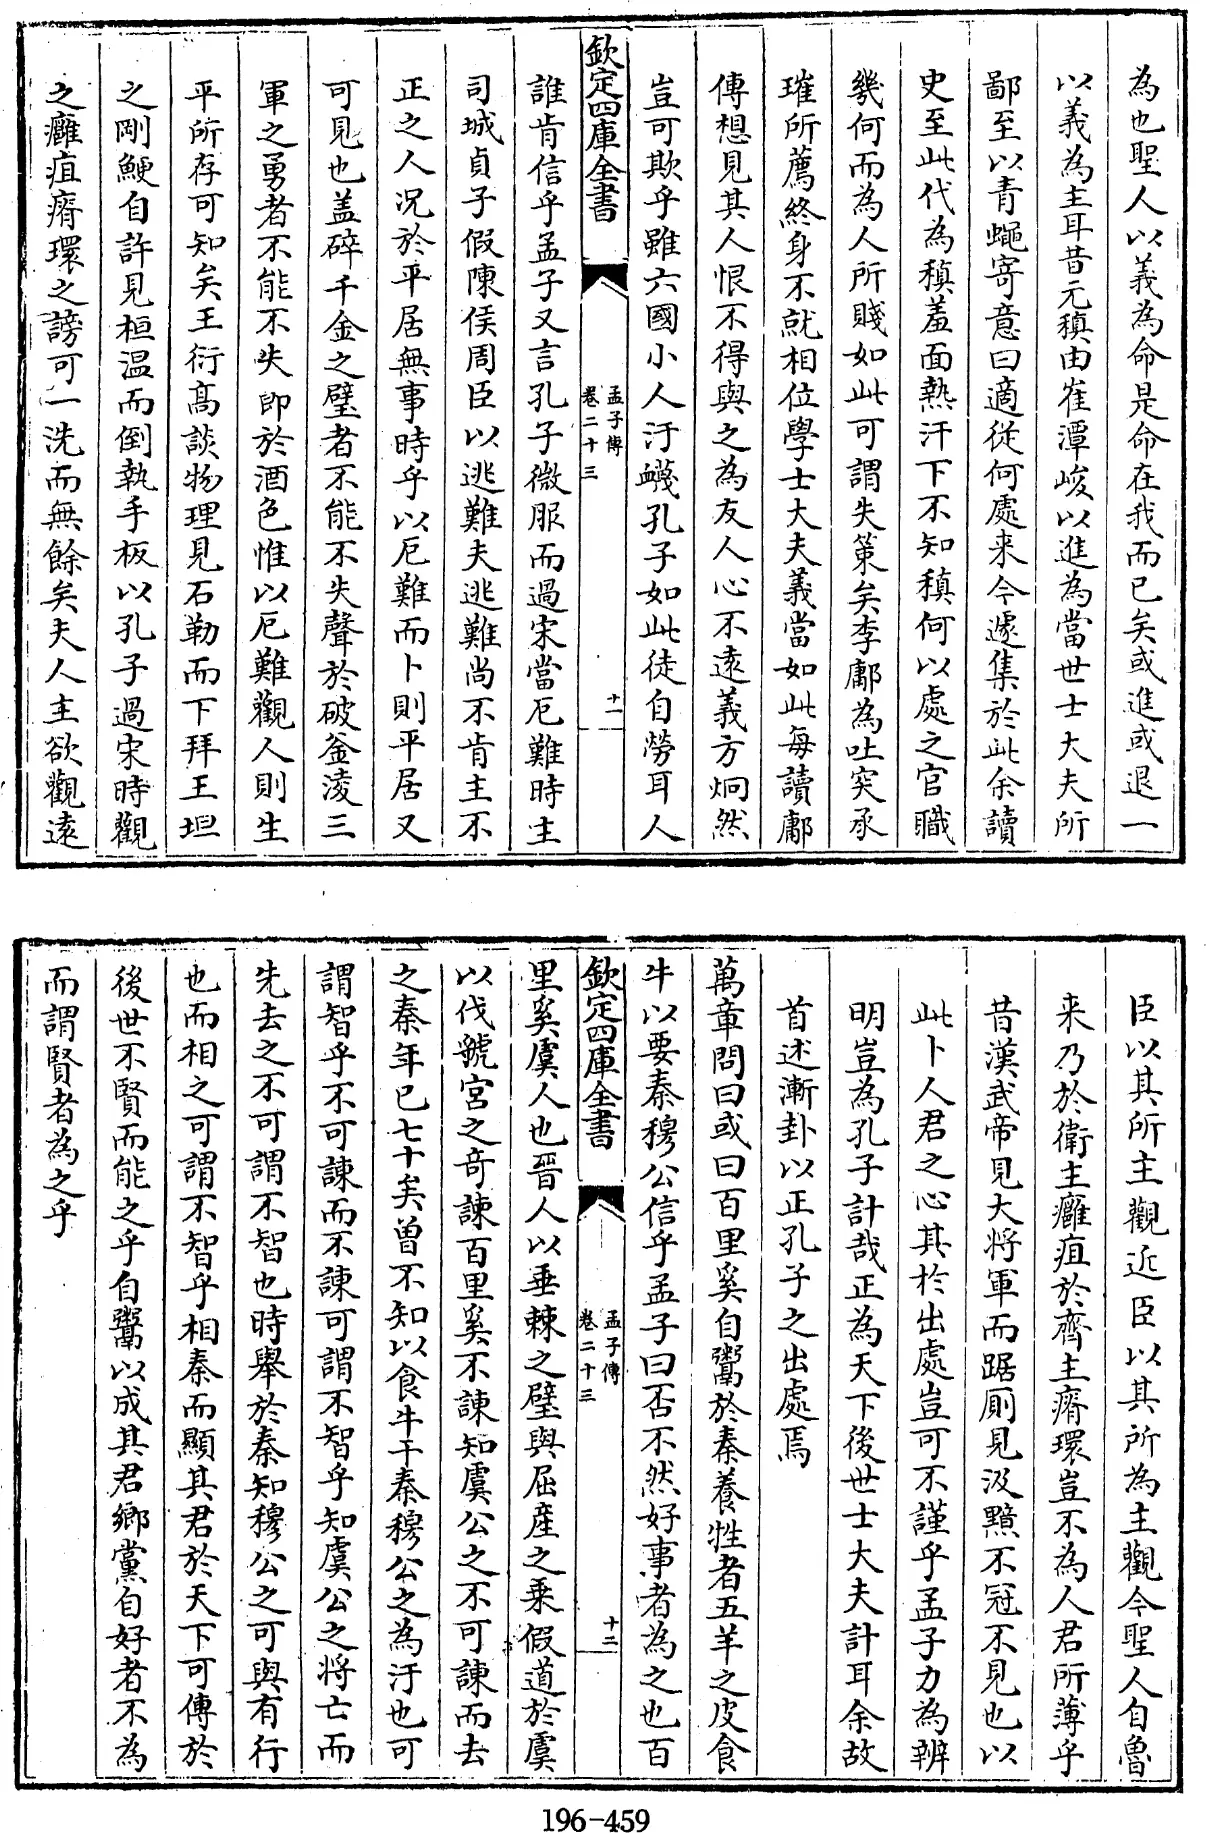 為也聖人以義為命是命在我而已矣或進或退一
以義為主耳昔元稹由崔潭峻以進為當世士大夫所
鄙至以青蠅寄意曰適從何處来今遽集於此余讀
史至此代為稹羞面熱汗下不知稹何以處之官職
幾何而為人所賤如此可謂失策矣李鄘為吐突承
璀所薦終身不就相位學士大夫義當如此每讀鄘
傳想見其人恨不得與之為友人心不逺義方炯然
豈可欺乎雖六國小人汙衊孔子如此徒自勞耳人
欽定四庫全書
孟子傳
卷二十三
十一
誰肯信乎孟子又言孔子微服而過宋當厄難時主
司城貞子假陳侯周臣以逃難夫逃難尚不肯主不
正之人况於平居無事時乎以厄難而卜則平居又
可見也盖碎千金之璧者不能不失聲於破釜淩三
軍之勇者不能不失即於酒色惟以厄難觀人則生
平所存可知矣王衍髙談物理見石勒而下拜王坦
之剛鯁自許見桓温而倒執手板以孔子過宋時觀
之癰疽瘠環之謗可一洗而無餘矣夫人主欲觀逺
臣以其所主觀近臣以其所為主觀今聖人自魯
来乃於衛主癰疽於齊主瘠環豈不為人君所薄乎
昔漢武帝見大将軍而踞厠見汲黯不冠不見也以
此卜人君之心其於出處豈可不謹乎孟子力為辨
明豈為孔子計哉正為天下後世士大夫計耳余故
首述漸卦以正孔子之出處焉
萬章問曰或曰百里奚自鬻於秦養牲者五羊之皮食
牛以要秦穆公信乎孟子曰否不然好事者為之也百
欽定四庫全書
孟子傳
卷二十三
十二
里奚虞人也晉人以垂棘之璧與屈産之乗假道於虞
以伐虢宮之奇諫百里奚不諫知虞公之不可諫而去
之秦年已七十矣曽不知以食牛干秦穆公之為汙也可
謂智乎不可諫而不諫可謂不智乎知虞公之将亡而
先去之不可謂不智也時舉於秦知穆公之可與有行
也而相之可謂不智乎相秦而顯其君於天下可傳於
後世不賢而能之乎自鬻以成其君鄉黨自好者不為
而謂賢者為之乎
196-459